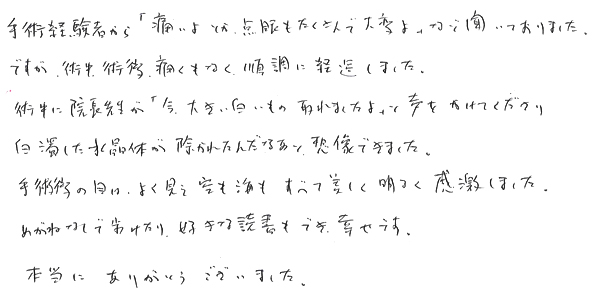 手術経験者から「痛いよとか、点眼もたくさんで大変よ」などと聞いておりました。
ですが、術中、術後、痛くもなく、順調に経過しました。
術中に院長先生が「今、大きい白いもの取れましたよ」と声をかけてくださり
白濁した水晶体が除かれたんだなあと想像できました。
手術後の目は、よく見え空も海もすべて美しく明るく感激しました。
めがねなしで歩けたり、好きな読書もでき、幸せです。
本当にありがとうございました。